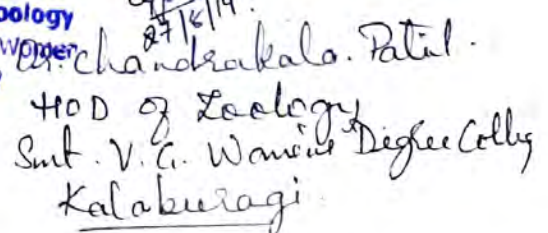 oology
27/6/19.
Women
Dr. Chandrakala. Patil.
HOD of Zoology
Smt. V. G. Women's Degree Colleg
Kalaburagi